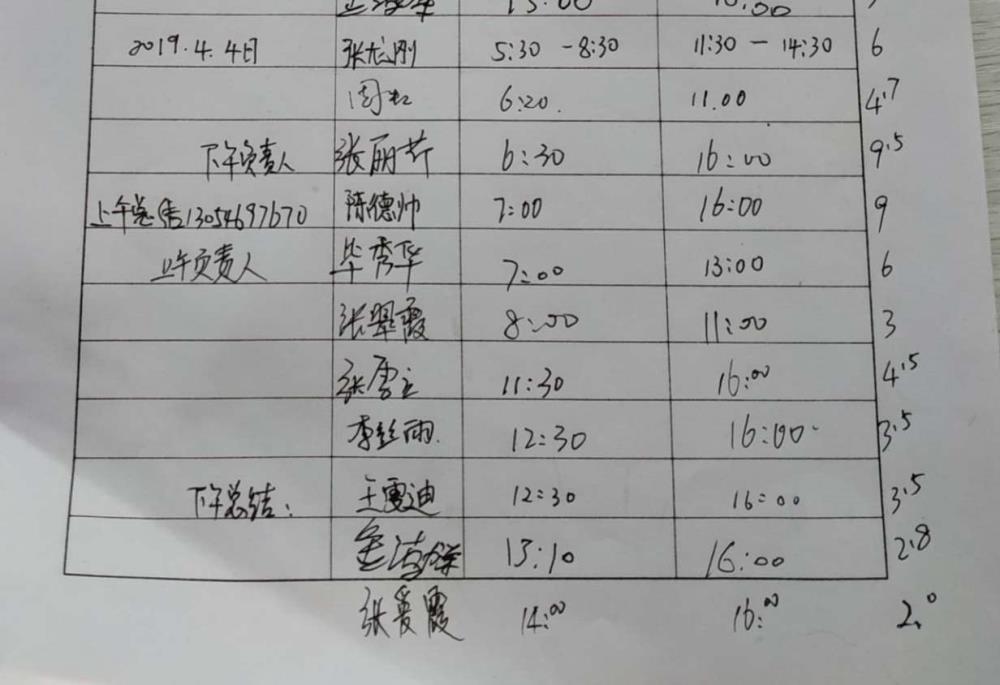 15:00 16:00
2019.4.4日 张龙刚 5:30 - 8:30 11:30 - 14:30 6
周虹 6:20. 11.00 4.7
下午负责人 张丽芹 6:30 16:00 9.5
上午总结13054697670 陈德帅 7:00 16:00 9
上午负责人 毕秀华 7:00 13:00 6
张翠霞 8:00 11:00 3
张雪立 11:30 16:00 4.5
李彭雨. 12:30 16:00 3.5
下午总结: 王雪迪 12:30 16:00 3.5
金海 13:10 16:00 2.8
张爱霞 14:00 16:00 2.0